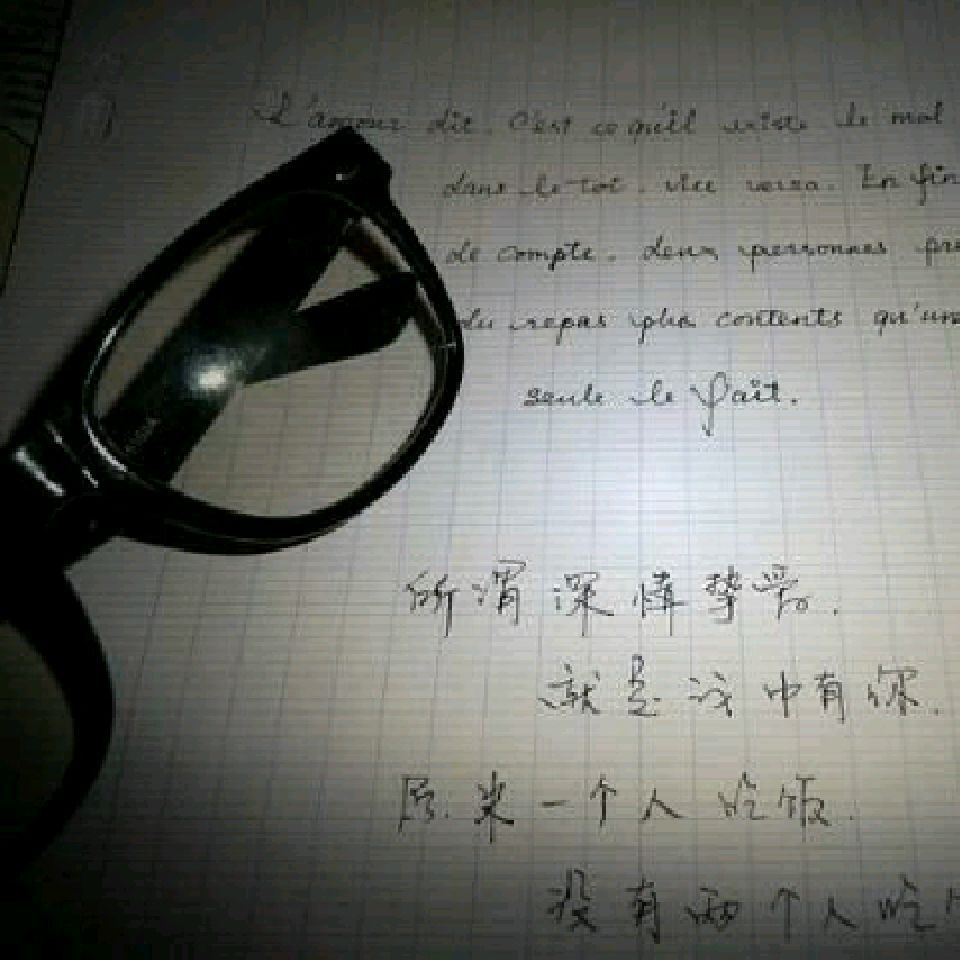 L'amour dit. C'est ce qu'il existe le mol
dans le toi. vice versa. En fin
de compte. deux personnes pre
du repas plus contents qu'une
seule le fait.
所谓深情挚爱.
就是我中有你.
原来一个人吃饭.
没有两个人吃